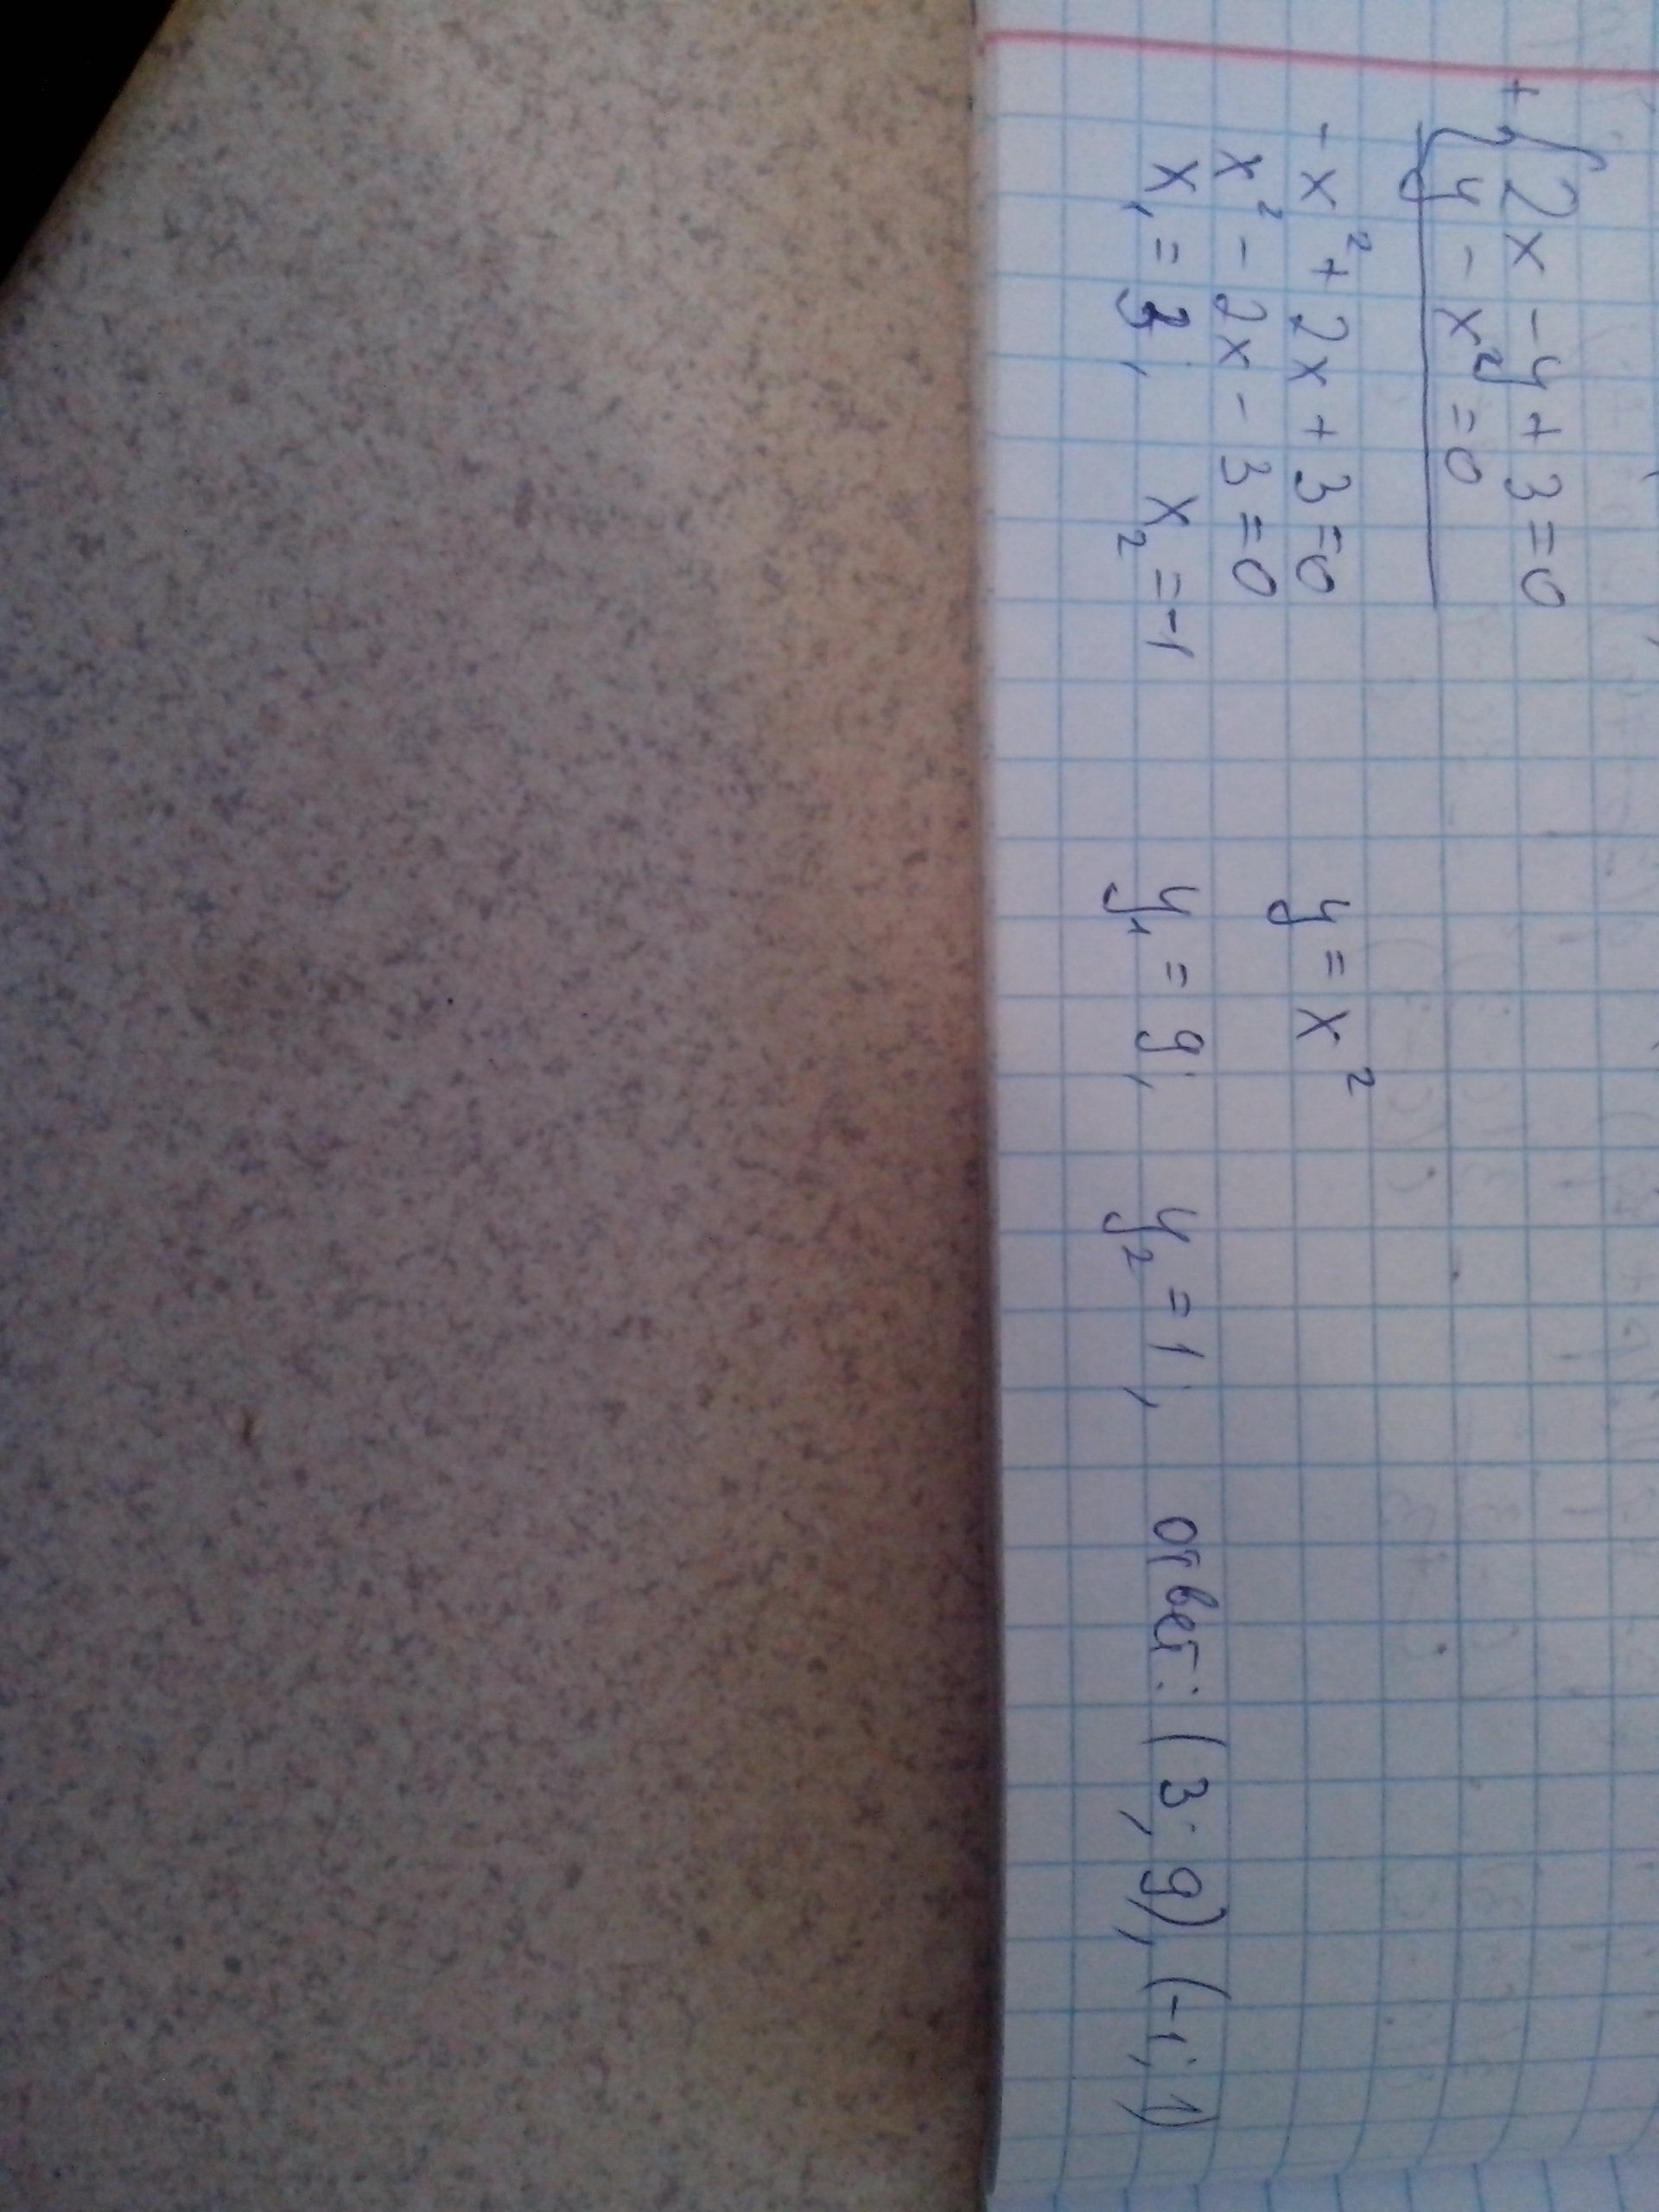 + { 2x - y + 3 = 0
y - x² = 0
- x² + 2x + 3 = 0 y = x²
x² - 2x - 3 = 0
x₁ = 3; x₂ = -1 y₁ = 9; y₂ = 1; ответ: (3; 9), (-1; 1)